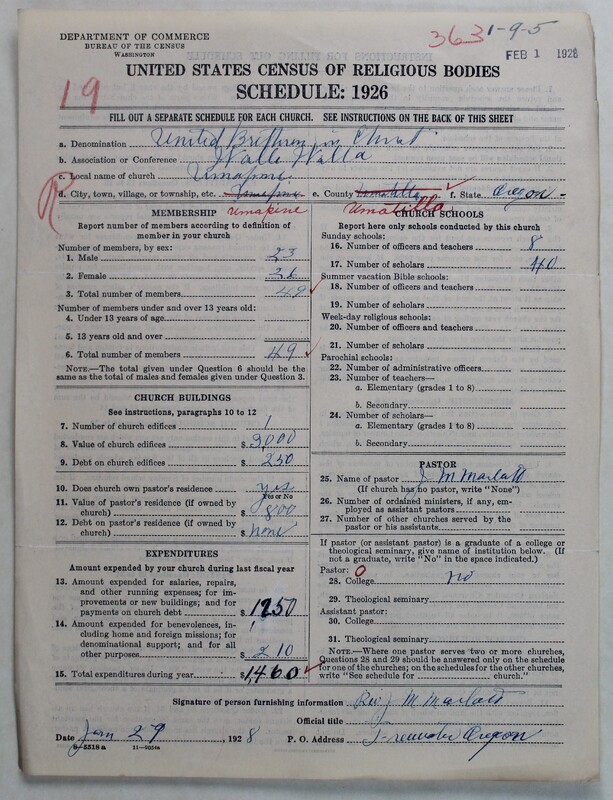 DEPARTMENT OF COMMERCE
BUREAU OF THE CENSUS
WASHINGTON
363 1-9-5
FEB 1 1928
19
UNITED STATES CENSUS OF RELIGIOUS BODIES
SCHEDULE: 1926
FILL OUT A SEPARATE SCHEDULE FOR EACH CHURCH. SEE INSTRUCTIONS ON THE BACK OF THIS SHEET
a. Denomination United Brethren in Christ
b. Association or Conference Walla Walla
c. Local name of church Umapine
d. City, town, village, or township, etc. Umapine e. County Umatilla f. State Oregon
Umapine Umatilla
MEMBERSHIP
Report number of members according to definition of member in your church
Number of members, by sex:
1. Male 23
2. Female 26
3. Total number of members 49
Number of members under and over 13 years old:
4. Under 13 years of age
5. 13 years old and over
6. Total number of members 49
NOTE.—The total given under Question 6 should be the
same as the total of males and females given under Question 3.
CHURCH BUILDINGS
See instructions, paragraphs 10 to 12
7. Number of church edifices 1
8. Value of church edifices $ 3000
9. Debt on church edifices $ 250
10. Does church own pastor's residence yes
Yes or No
11. Value of pastor's residence (if owned by
church) $ 800
12. Debt on pastor's residence (if owned by
church) $ None
EXPENDITURES
Amount expended by your church during last fiscal year
13. Amount expended for salaries, repairs,
and other running expenses; for im-
provements or new buildings; and for
payments on church debt $ 1250
14. Amount expended for benevolences, in-
cluding home and foreign missions; for
denominational support; and for all
other purposes $ 210
15. Total expenditures during year $ 1,460
CHURCH SCHOOLS
Report here only schools conducted by this church
Sunday schools:
16. Number of officers and teachers 8
17. Number of scholars 40
Summer vacation Bible schools:
18. Number of officers and teachers
19. Number of scholars
Week-day religious schools:
20. Number of officers and teachers
21. Number of scholars
Parochial schools:
22. Number of administrative officers
23. Number of teachers—
a. Elementary (grades 1 to 8)
b. Secondary
24. Number of scholars—
a. Elementary (grades 1 to 8)
b. Secondary
PASTOR
25. Name of pastor J M Marlatt
(If church has no pastor, write "None")
26. Number of ordained ministers, if any, em-
ployed as assistant pastors
27. Number of other churches served by the
pastor or his assistants
If pastor (or assistant pastor) is a graduate of a college or
theological seminary, give name of institution below. (If
not a graduate, write "No" in the space indicated.)
Pastor: 0
28. College no
29. Theological seminary
Assistant pastor:
30. College
31. Theological seminary
NOTE.—Where one pastor serves two or more churches,
Questions 28 and 29 should be answered only on the schedule
for one of the churches; on the schedules for the other churches,
write "See schedule for church."
Signature of person furnishing information Rev J M Marlatt
Official title
Date Jan 29, 1928 P. O. Address Freewater Oregon
8-5518 a